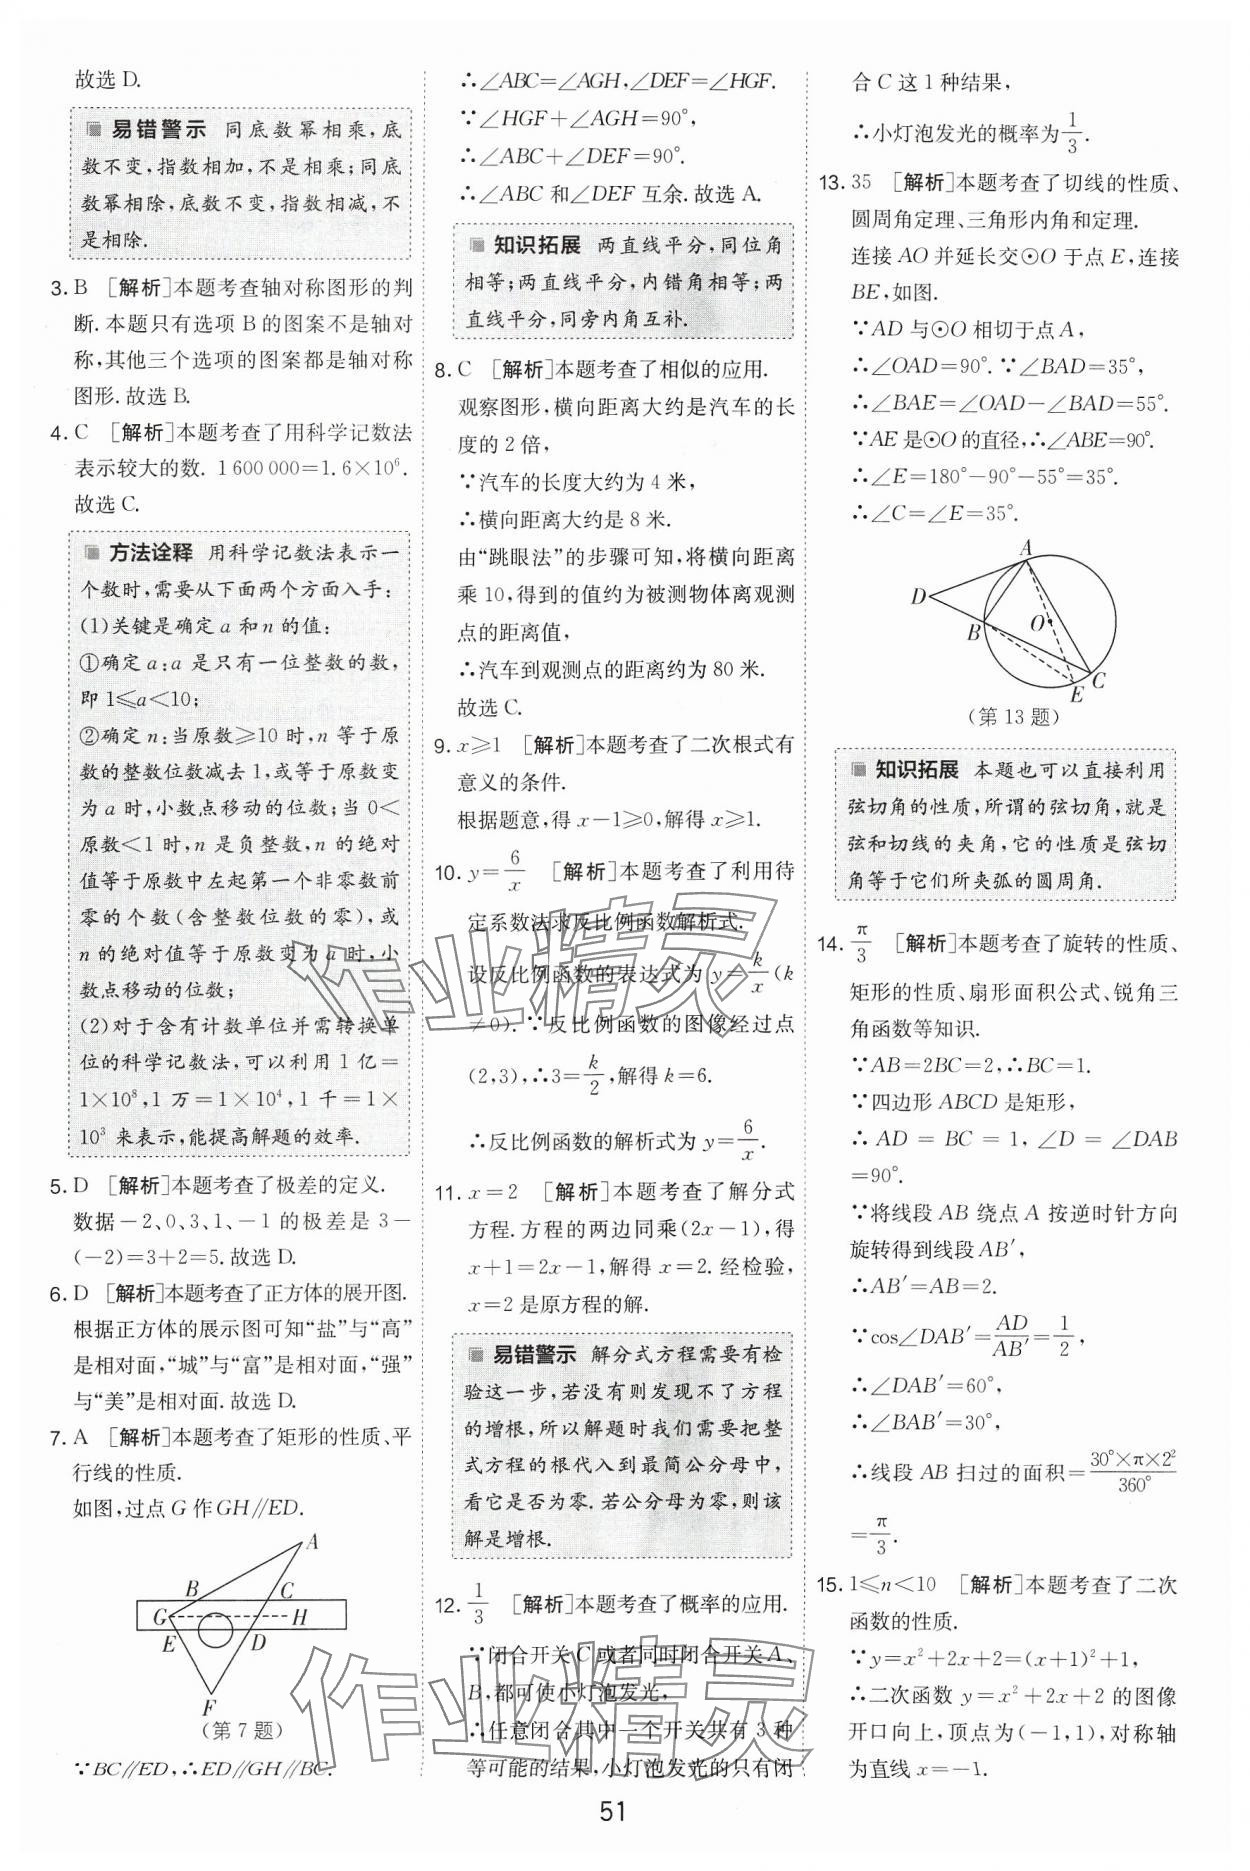 故选 D.
易错警示 同底数幂相乘,底
数不变,指数相加,不是相乘;同底
数幂相除,底数不变,指数相减,不
是相除.
3. B [解析]本题考查轴对称图形的判
断.本题只有选项 B 的图案不是轴对
称,其他三个选项的图案都是轴对称
图形.故选 B.
4. C [解析]本题考查了用科学记数法
表示较大的数. 1 600 000=1.6×10⁶.
故选 C.
方法诠释 用科学记数法表示一
个数时,需要从下面两个方面入手:
(1)关键是确定 a 和 n 的值:
①确定 a:a 是只有一位整数的数,
即 1⩽a<10;
②确定 n:当原数⩾10 时,n 等于原
数的整数位数减去 1,或等于原数变
为 a 时,小数点移动的位数;当 0<
原数<1 时,n 是负整数,n 的绝对
值等于原数中左起第一个非零数前
零的个数(含整数位数的零),或
n 的绝对值等于原数变为 a 时,小
数点移动的位数;
(2)对于含有计数单位并需转换单
位的科学记数法,可以利用 1 亿=
1×10⁸,1 万=1×10⁴,1 千=1×
10³ 来表示,能提高解题的效率.
5. D [解析]本题考查了极差的定义.
数据-2、0、3、1、-1 的极差是 3-
(-2)=3+2=5.故选 D.
6. D [解析]本题考查了正方体的展开图.
根据正方体的展示图可知“盐”与“高”
是相对面,“城”与“富”是相对面,“强”
与“美”是相对面.故选 D.
7. A [解析]本题考查了矩形的性质、平
行线的性质.
如图,过点 G 作 GH∥ED.
A
B C
G H
E D
F
(第 7 题)
∵BC∥ED,∴ED∥GH∥BC.
∴∠ABC=∠AGH,∠DEF=∠HGF.
∵∠HGF+∠AGH=90°,
∴∠ABC+∠DEF=90°.
∴∠ABC 和∠DEF 互余.故选 A.
知识拓展 两直线平分,同位角
相等;两直线平分,内错角相等;两
直线平分,同旁内角互补.
8. C [解析]本题考查了相似的应用.
观察图形,横向距离大约是汽车的长
度的 2 倍,
∵汽车的长度大约为 4 米,
∴横向距离大约是 8 米.
由“跳眼法”的步骤可知,将横向距离
乘 10,得到的值约为被测物体离观测
点的距离值,
∴汽车到观测点的距离约为 80 米.
故选 C.
9. x⩾1 [解析]本题考查了二次根式有
意义的条件.
根据题意,得 x-1⩾0,解得 x⩾1.
10. y=6/x [解析]本题考查了利用待
定系数法求反比例函数解析式.
设反比例函数的表达式为 y=k/x(k
≠0).∵反比例函数的图像经过点
(2,3),∴3=k/2,解得 k=6.
∴反比例函数的解析式为 y=6/x.
11. x=2 [解析]本题考查了解分式
方程.方程的两边同乘(2x-1),得
x+1=2x-1,解得 x=2.经检验,
x=2 是原方程的解.
易错警示 解分式方程需要有检
验这一步,若没有则发现不了方程
的增根,所以解题时我们需要把整
式方程的根代入到最简公分母中,
看它是否为零.若公分母为零,则该
解是增根.
12. 1/3 [解析]本题考查了概率的应用.
∵闭合开关 C 或者同时闭合开关 A、
B,都可使小灯泡发光,
∴任意闭合其中一个开关共有 3 种
等可能的结果,小灯泡发光的只有闭
合 C 这 1 种结果,
∴小灯泡发光的概率为1/3.
13. 35 [解析]本题考查了切线的性质、
圆周角定理、三角形内角和定理.
连接 AO 并延长交⊙O 于点 E,连接
BE,如图.
∵AD 与⊙O 相切于点 A,
∴∠OAD=90°.∵∠BAD=35°,
∴∠BAE=∠OAD-∠BAD=55°.
∵AE 是⊙O 的直径,∴∠ABE=90°.
∴∠E=180°-90°-55°=35°.
∴∠C=∠E=35°.
A
D
B O
C
E
(第 13 题)
知识拓展 本题也可以直接利用
弦切角的性质,所谓的弦切角,就是
弦和切线的夹角,它的性质是弦切
角等于它们所夹弧的圆周角.
14. π/3 [解析]本题考查了旋转的性质、
矩形的性质、扇形面积公式、锐角三
角函数等知识.
∵AB=2BC=2,∴BC=1.
∵四边形 ABCD 是矩形,
∴AD=BC=1,∠D=∠DAB
=90°.
∵将线段 AB 绕点 A 按逆时针方向
旋转得到线段 AB′,
∴AB′=AB=2.
∵cos∠DAB′=AD/AB′=1/2,
∴∠DAB′=60°,
∴∠BAB′=30°,
∴线段 AB 扫过的面积=30°×π×2²/360°
=π/3.
15. 1⩽n<10 [解析]本题考查了二次
函数的性质.
∵y=x²+2x+2=(x+1)²+1,
∴二次函数 y=x²+2x+2 的图像
开口向上,顶点为(-1,1),对称轴
为直线 x=-1.
51
作业精灵
作业精灵